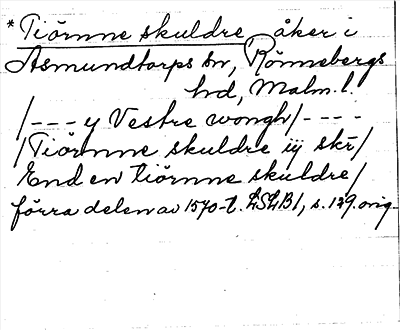 *Tiörnne skuldre, åker i
Asmundtorps sn, Rönnebergs
hd, Malm. l.
/--- y Vestre wongh/----
/Tiörnne skuldre iij skr/
End en tiörnne skuldre/
förra delen av 1570-t. LSLB1, s. 129. orig.